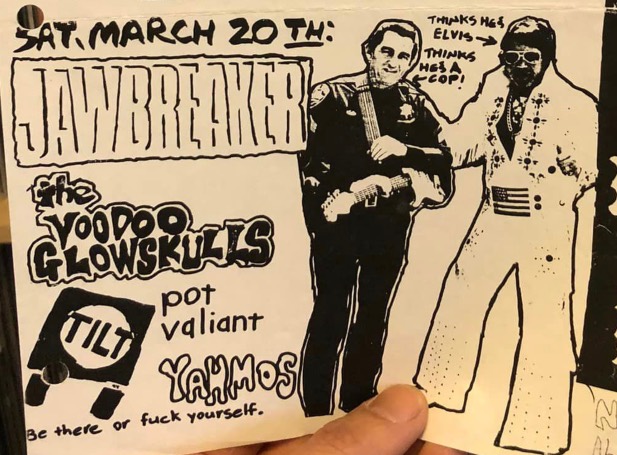 SAT. MARCH 20TH:
JAWBREAKER
the
VOODOO
GLOWSKULLS
TILT
pot
valiant
YAHMOS
Be there or fuck yourself.
THINKS HE'S
ELVIS →
THINKS
HE'S A
← COP!